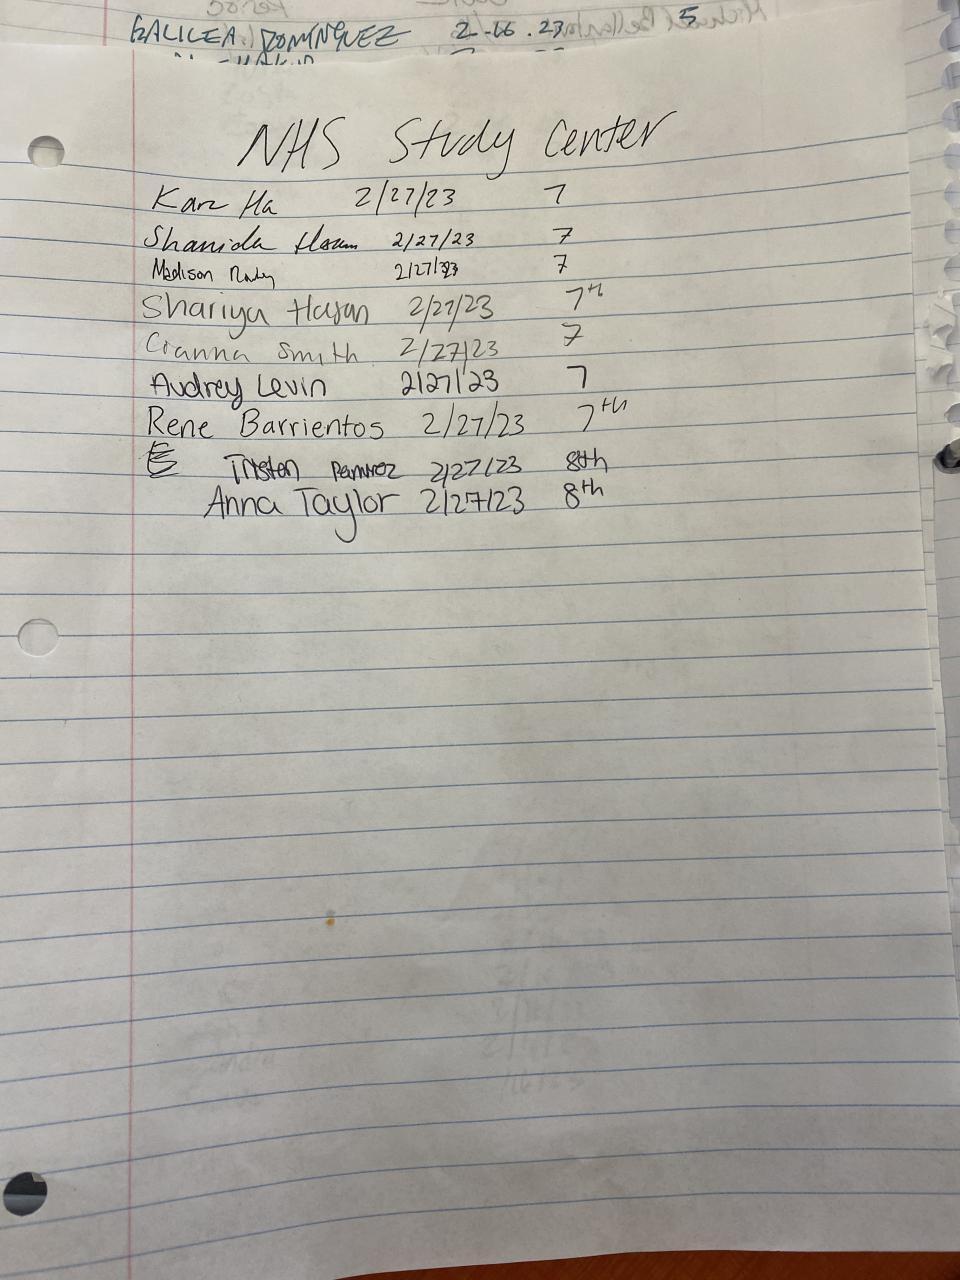 GALILEA DOMINGUEZ 2-16.23 5
NHS Study Center
Kara Ha 2/27/23 7
Shanida 2/27/23 7
Madison 2/27/23 7
Shariya Hasan 2/27/23 7th
Cianna Smith 2/27/23 7
Audrey Levin 2/27/23 7
Rene Barrientos 2/27/23 7th
Tristen Ramirez 2/27/23 8th
Anna Taylor 2/27/23 8th